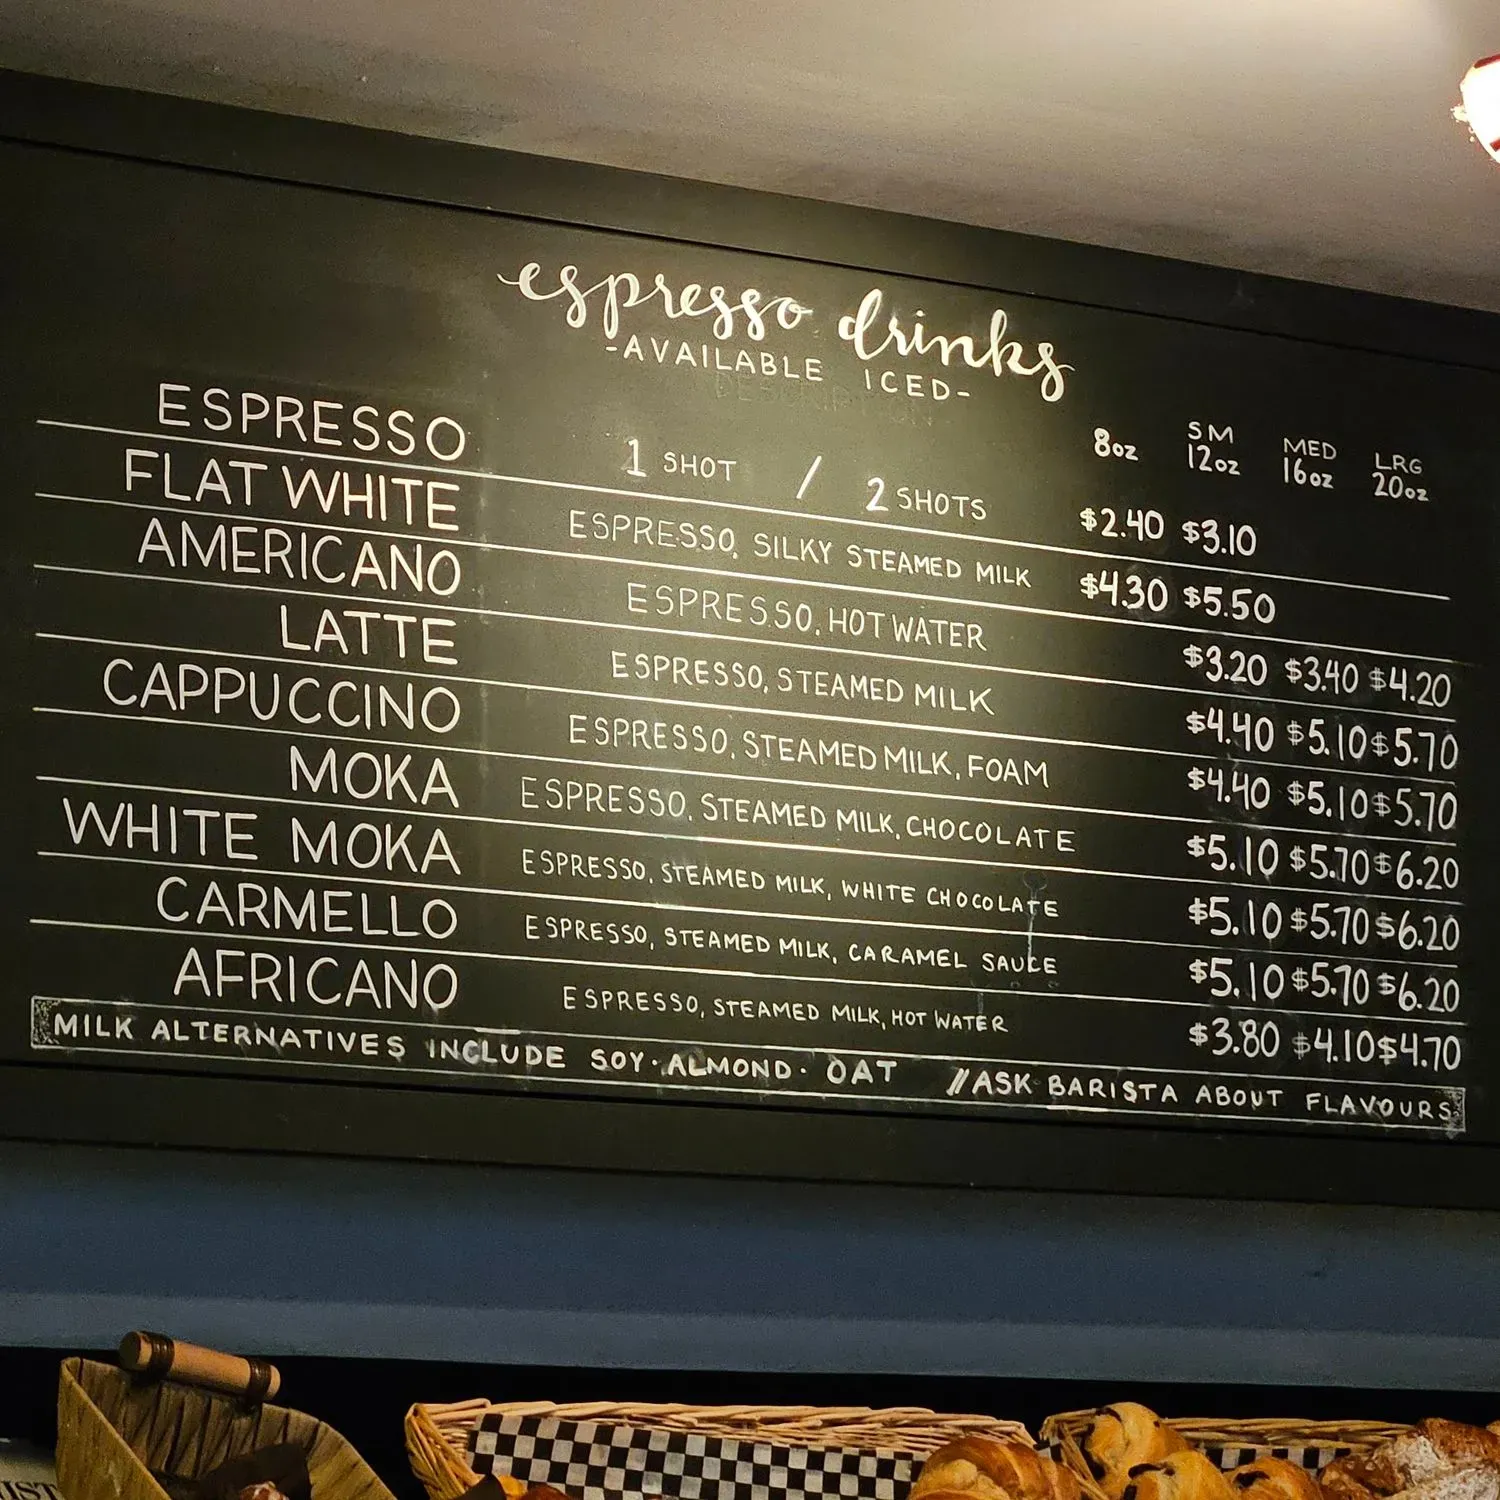 espresso drinks
-AVAILABLE ICED-
8oz SM 12oz MED 16oz LRG 20oz
ESPRESSO 1 SHOT / 2 SHOTS $2.40 $3.10
FLAT WHITE ESPRESSO, SILKY STEAMED MILK $4.30 $5.50
AMERICANO ESPRESSO, HOT WATER $3.20 $3.40 $4.20
LATTE ESPRESSO, STEAMED MILK $4.40 $5.10 $5.70
CAPPUCCINO ESPRESSO, STEAMED MILK, FOAM $4.40 $5.10 $5.70
MOKA ESPRESSO, STEAMED MILK, CHOCOLATE $5.10 $5.70 $6.20
WHITE MOKA ESPRESSO, STEAMED MILK, WHITE CHOCOLATE $5.10 $5.70 $6.20
CARMELLO ESPRESSO, STEAMED MILK, CARAMEL SAUCE $5.10 $5.70 $6.20
AFRICANO ESPRESSO, STEAMED MILK, HOT WATER $3.80 $4.10 $4.70
MILK ALTERNATIVES INCLUDE SOY · ALMOND · OAT //ASK BARISTA ABOUT FLAVOURS